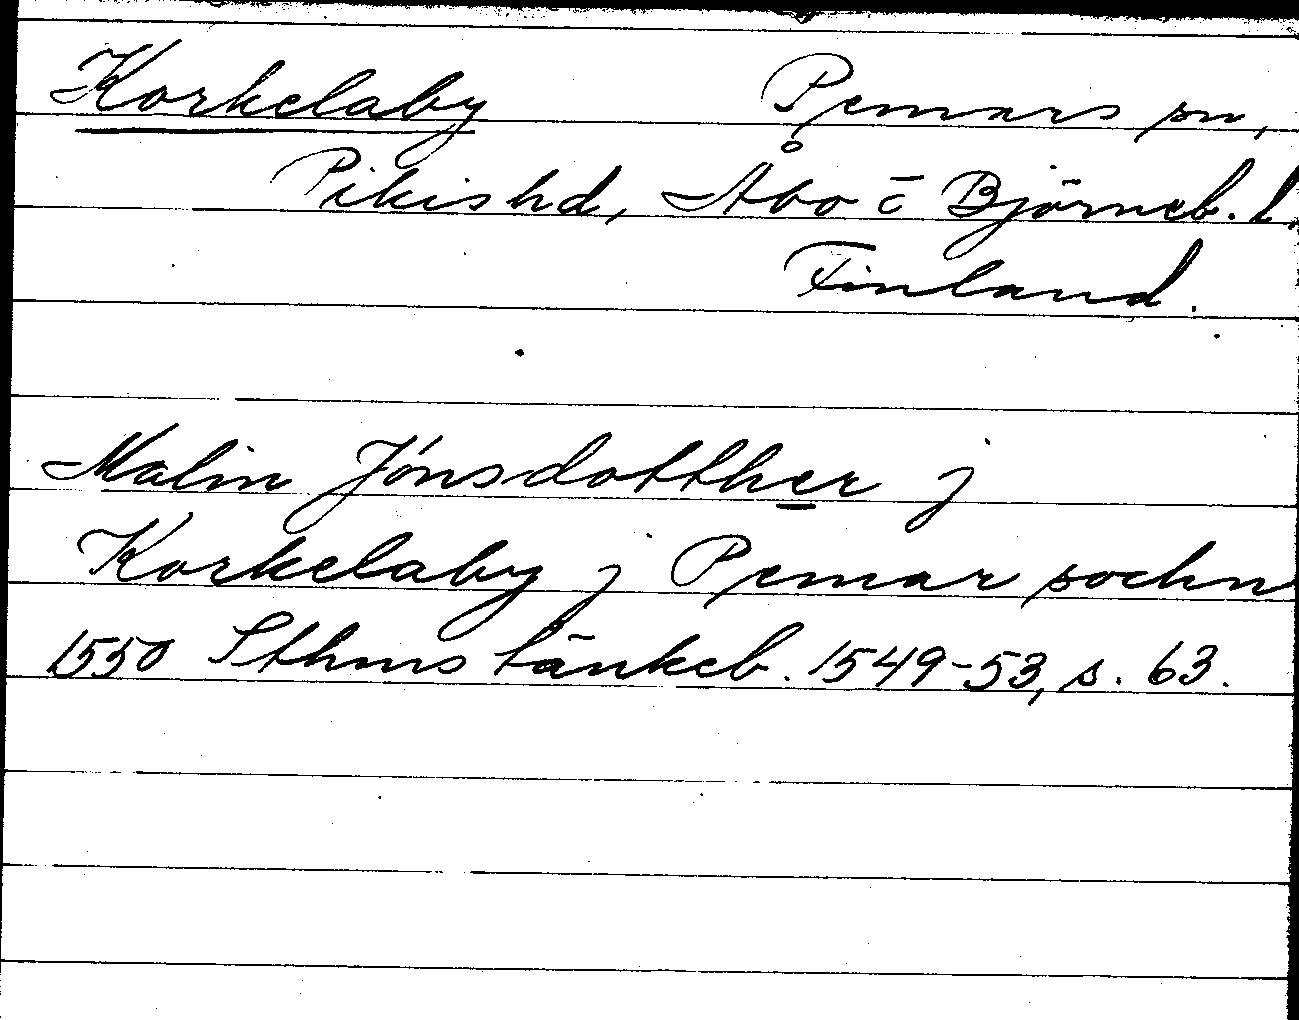 Korkelaby Pemars sn,
Pikis hd, Åbo o Björneb. l.
Finland.
Malin Jönsdotther j
Korkelaby j Pemar sochn
1550 Sthms tänkeb. 1549-53, s. 63.